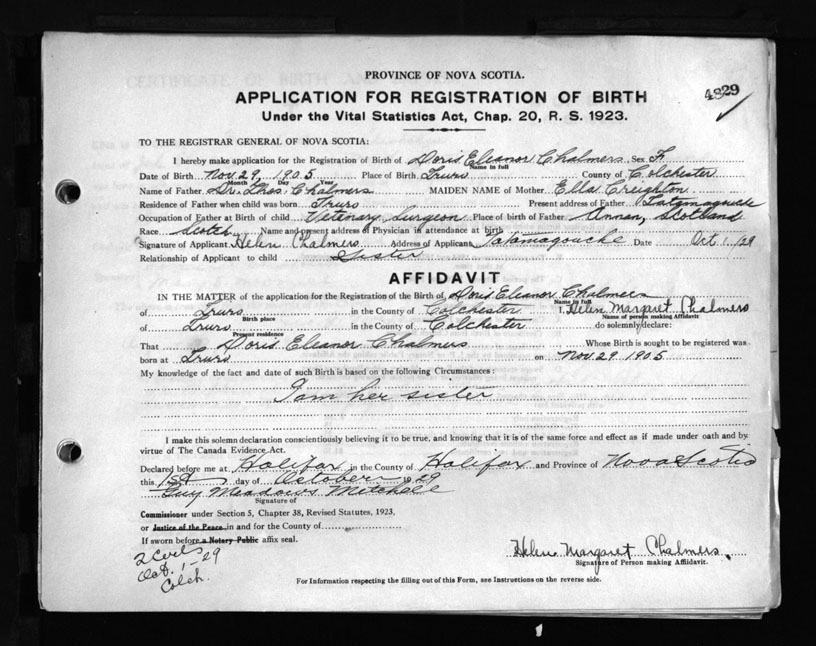 PROVINCE OF NOVA SCOTIA.
4829
APPLICATION FOR REGISTRATION OF BIRTH
Under the Vital Statistics Act, Chap. 20, R. S. 1923.
TO THE REGISTRAR GENERAL OF NOVA SCOTIA:
I hereby make application for the Registration of Birth of Doris Eleanor Chalmers Sex F.
Name in full
Date of Birth Nov 29, 1905 Place of Birth Truro County of Colchester
Month Day Year
Name of Father Dr. Thos. Chalmers MAIDEN NAME of Mother Ella Creighton
Residence of Father when child was born Truro Present address of Father Tatamagouche
Occupation of Father at Birth of child Vetenary Surgeon Place of birth of Father Annan, Scotland
Race Scotch Name and present address of Physician in attendance at birth
Signature of Applicant Helen Chalmers Address of Applicant Tatamagouche Date Oct 1/29
Relationship of Applicant to child Sister
AFFIDAVIT
IN THE MATTER of the application for the Registration of the Birth of Doris Eleanor Chalmers
Name in full
of Truro in the County of Colchester I, Helen Margaret Chalmers
Birth place Name of person making Affidavit
of Truro in the County of Colchester do solemnly declare:
Present residence
That Doris Eleanor Chalmers Whose Birth is sought to be registered was
born at Truro on Nov. 29 1905
My knowledge of the fact and date of such Birth is based on the following Circumstances:
I am her sister
I make this solemn declaration conscientiously believing it to be true, and knowing that it is of the same force and effect as if made under oath and by
virtue of The Canada Evidence Act.
Declared before me at Halifax in the County of Halifax and Province of Nova Scotia
this 1st day of October 1929
Guy Meadows Mitchell
Signature of
Commissioner under Section 5, Chapter 38, Revised Statutes, 1923.
or Justice of the Peace in and for the County of
If sworn before a Notary Public affix seal.
2 Certs
Oct. 1-29
Colch.
Helen Margaret Chalmers
Signature of Person making Affidavit.
For Information respecting the filling out of this Form, see Instructions on the reverse side.